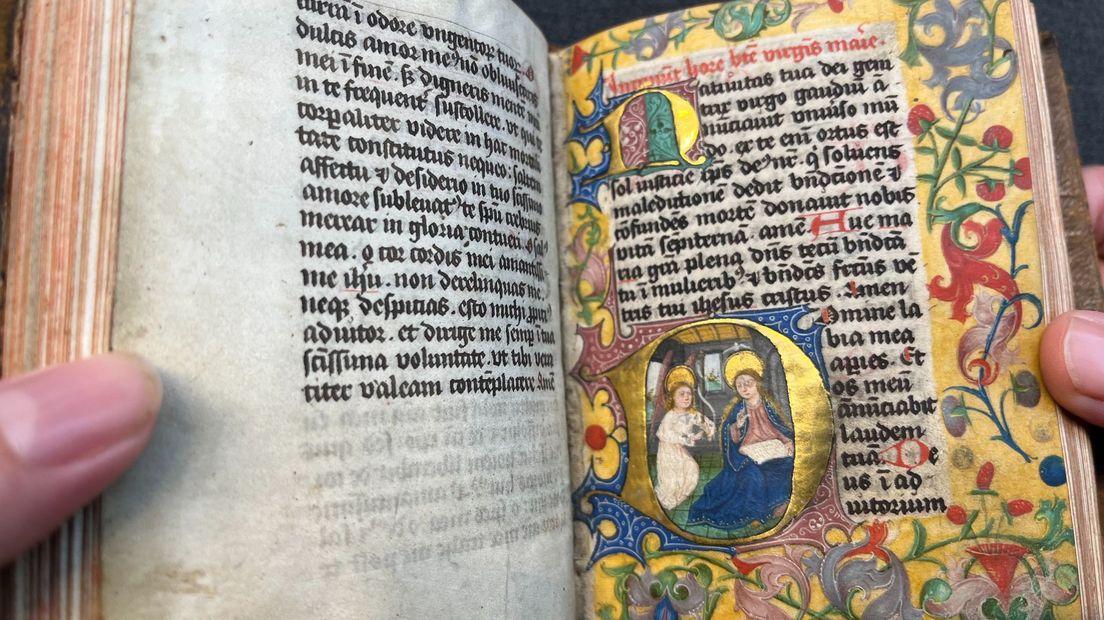 dulcis amor me⁹ nō obliuiscaris
mei ī finē. sʒ digneris mentē meā
in te frequent̄ sustollere. vt quē te
corꝑaliter videre in hac mortali
tate constitutus nequeo: saltem
affectu ⁊ desiderio in tuo scīssimo
amore subleuat⁹ te spū crebrius
merear in gloria contueri. O sal⁹
mea. o cor cordis mei amantissi
me ihū. non derelinquas me.
neqꝫ despicias. esto michi ꝓpici⁹
adiutor. et dirige me semꝑ ī tua
scīssima voluntate. vt tibi vera
citer valeam contēplacere Amē
Incipiūt hore btē virgīs maīe.
Natiuitas tua dei geni
trix virgo gaudiū ā
nūciauit vniuīso mū
do. ex te enī ortus est
sol iusticie xp̄s de⁹ nr̄. q̄ soluens
maledictionē dedit bn̄dictionē ⁊
cōfundēs mortē donauit nobis
vitā sēpiternā. amē. Aue ma
ria grā plena dn̄s tecū bn̄dcā
tu ī mulierib⁹ ⁊ bn̄dcs fr̄cūs vē
tris tui ihesus cristus. Amen
Domine la
bia mea
aꝑies. Et
os meū
ānūciabit
laudem
tuā. De
us ī ad
iutorium